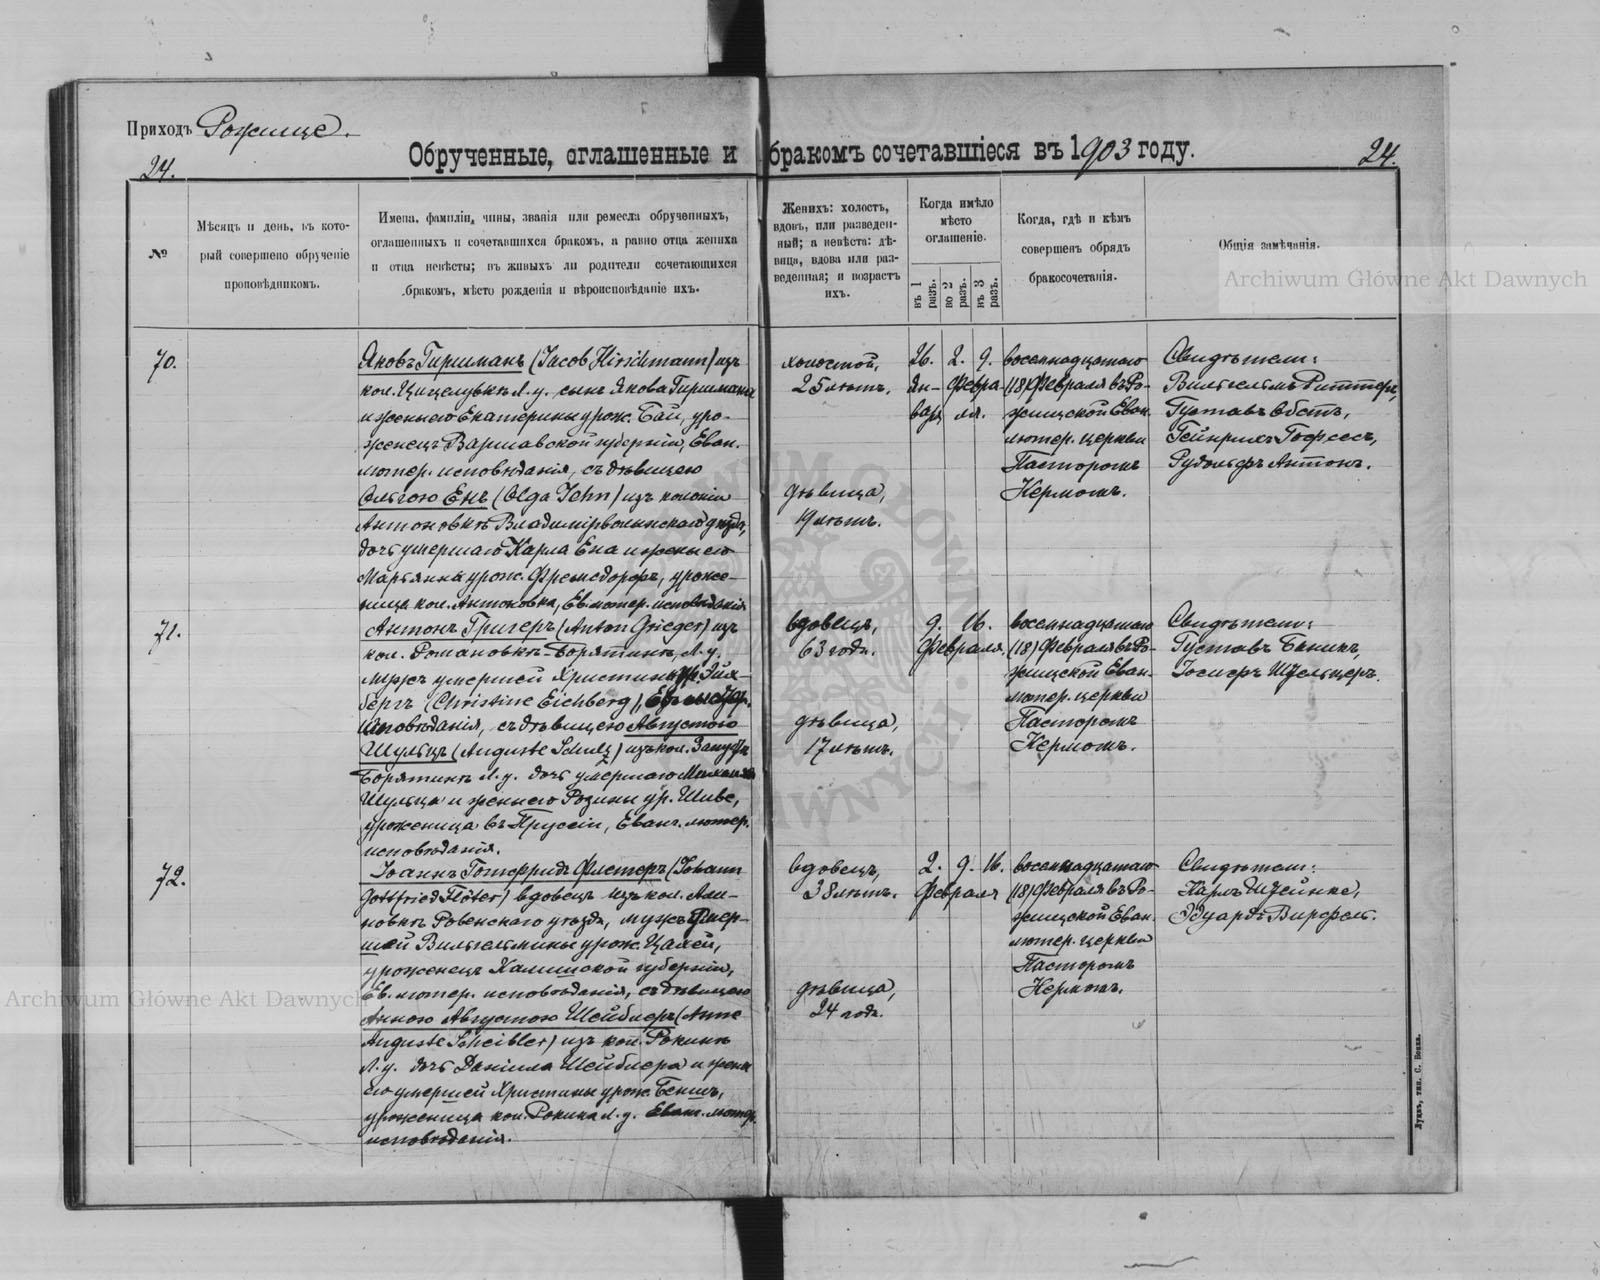 Приходъ Рожище.
24.
Обрученные, оглашенные и бракомъ сочетавшіеся въ 1903 году.
24.
№
Мѣсяцъ и день, въ кото-
рый совершено обрученіе
проповѣдникомъ.
Имена, фамиліи, чины, званія или ремесла обрученныхъ,
оглашенныхъ и сочетавшихся бракомъ, а равно отца жениха
и отца невѣсты; въ живыхъ ли родители сочетающихся
бракомъ, мѣсто рожденія и вѣроисповѣданіе ихъ.
Женихъ: холостъ,
вдовъ, или разведен-
ный; а невѣста: дѣ-
вица, вдова или раз-
веденная; и возрастъ
ихъ.
Когда имѣло
мѣсто
оглашеніе.
въ 1 разъ.
во 2 разъ.
въ 3 разъ.
Когда, гдѣ и кѣмъ
совершенъ обрядъ
бракосочетанія.
Общія замѣчанія.
70.
Яковъ Гиршманъ (Jacob Hirschmann) изъ
кол. Цицелувкѣ Л. у. сынъ Якова Гиршмана
и жены его Екатерины урож. Бай, уро-
женецъ Варшавской губерніи, Еван.
лютер. исповѣданія, съ дѣвицею
Ольгою Енъ (Olga Jehn) изъ колоніи
Антоновкѣ Владимірволынскаго уѣзда,
дочь умершаго Карла Ена и жены его
Марьянны урож. Фремсдорфъ, уроже-
ница кол. Антоновка, Ев. лютер. исповѣданія
холостой,
25 лѣтъ.
дѣвица,
19 лѣтъ.
26. 2. 9.
Ян- Февра-
варя ля.
восемнадцатаго
(18) Февраля въ Ро-
жищской Еван.
лютер. церкви
Пасторомъ
Кермомъ.
Свидѣтели:
Вильгельмъ Риттеръ,
Густавъ Обстъ,
Гейнрихъ
Рудольфъ Антонъ.
71.
Антонъ Григеръ (Anton Grieger) изъ
кол. Романовкѣ-Борятинъ, Л. у.
мужъ умершей Христины ур. Эйх-
бергъ (Christine Eichberg),
исповѣданія, съ дѣвицею Августою
Шульцъ (Auguste Schulz) изъ кол.
Борятинъ Л. у. дочь умершаго
Шульца и жены его Розины ур. Шиве,
уроженица въ Пруссіи, Еванг. лютер.
исповѣданія.
вдовецъ,
63 года.
дѣвица,
17 лѣтъ.
9. 16.
Февраля
восемнадцатаго
(18) Февраля въ Ро-
жищской Еван.
лютер. церкви
Пасторомъ
Кермомъ.
Свидѣтели:
Густавъ Баникъ,
Іосифъ Шмельцеръ.
72.
Іоаннъ Готтфридъ Флетеръ (Johann
Gottfried Flöter) вдовецъ изъ кол. Али-
новкѣ Ровенскаго уѣзда, мужъ умер-
шей Вильгельмины урож. Цахей,
уроженецъ Калишской губерніи,
Ев. лютер. исповѣданія, съ дѣвицею
Анною Августою Шейблеръ (Anne
Auguste Scheibler) изъ кол. Рокини
Л. у. дочь Даніила Шейблера и жены
его умершей Христины урож. Бенишъ,
уроженица кол. Рокини Л. у. Еванг. лютер.
исповѣданія.
вдовецъ,
38 лѣтъ.
дѣвица,
24 года.
2. 9. 16.
Февраля
восемнадцатаго
(18) Февраля въ Ро-
жищской Еван.
лютер. церкви
Пасторомъ
Кермомъ.
Свидѣтели:
Карлъ Штейнке,
Эдуардъ Вирфель.
Луцкъ, тип. С. Бокка.
Archiwum Główne Akt Dawnych
Archiwum Główne Akt Dawnych